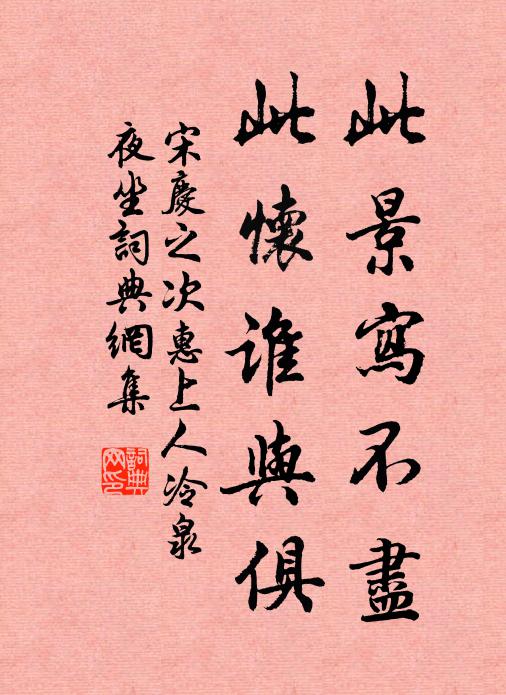 此景寫不盡
此懷誰與俱
宋慶之次惠上人冷泉
夜坐詞典網集
詞典網印